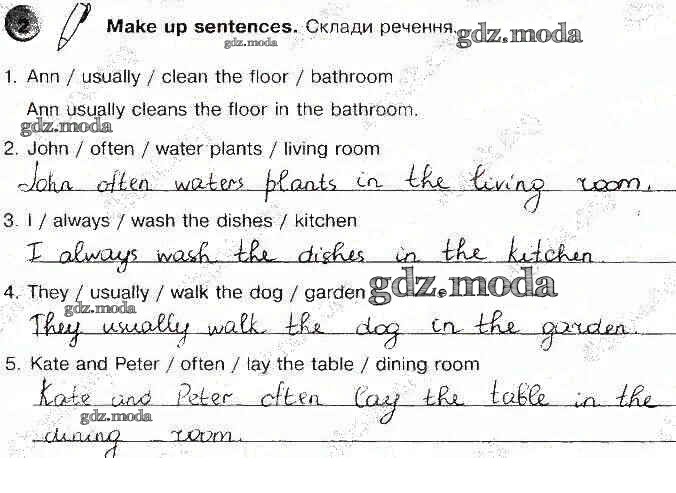 2 Make up sentences. Склади речення. gdz.moda
gdz.moda
1. Ann / usually / clean the floor / bathroom
Ann usually cleans the floor in the bathroom.
gdz.moda
2. John / often / water plants / living room
John often waters plants in the living room.
3. I / always / wash the dishes / kitchen
I always wash the dishes in the kitchen.
4. They / usually / walk the dog / garden gdz.moda
gdz.moda
They usually walk the dog in the garden.
5. Kate and Peter / often / lay the table / dining room
Kate and Peter often lay the table in the
gdz.moda
dining room.